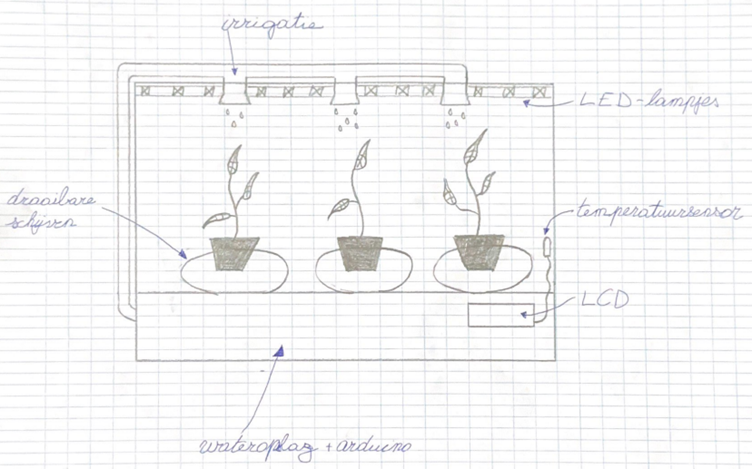 irrigatie
LED-lampjes
draaibare
schijven
temperatuursensor
LCD
wateropslag + arduino